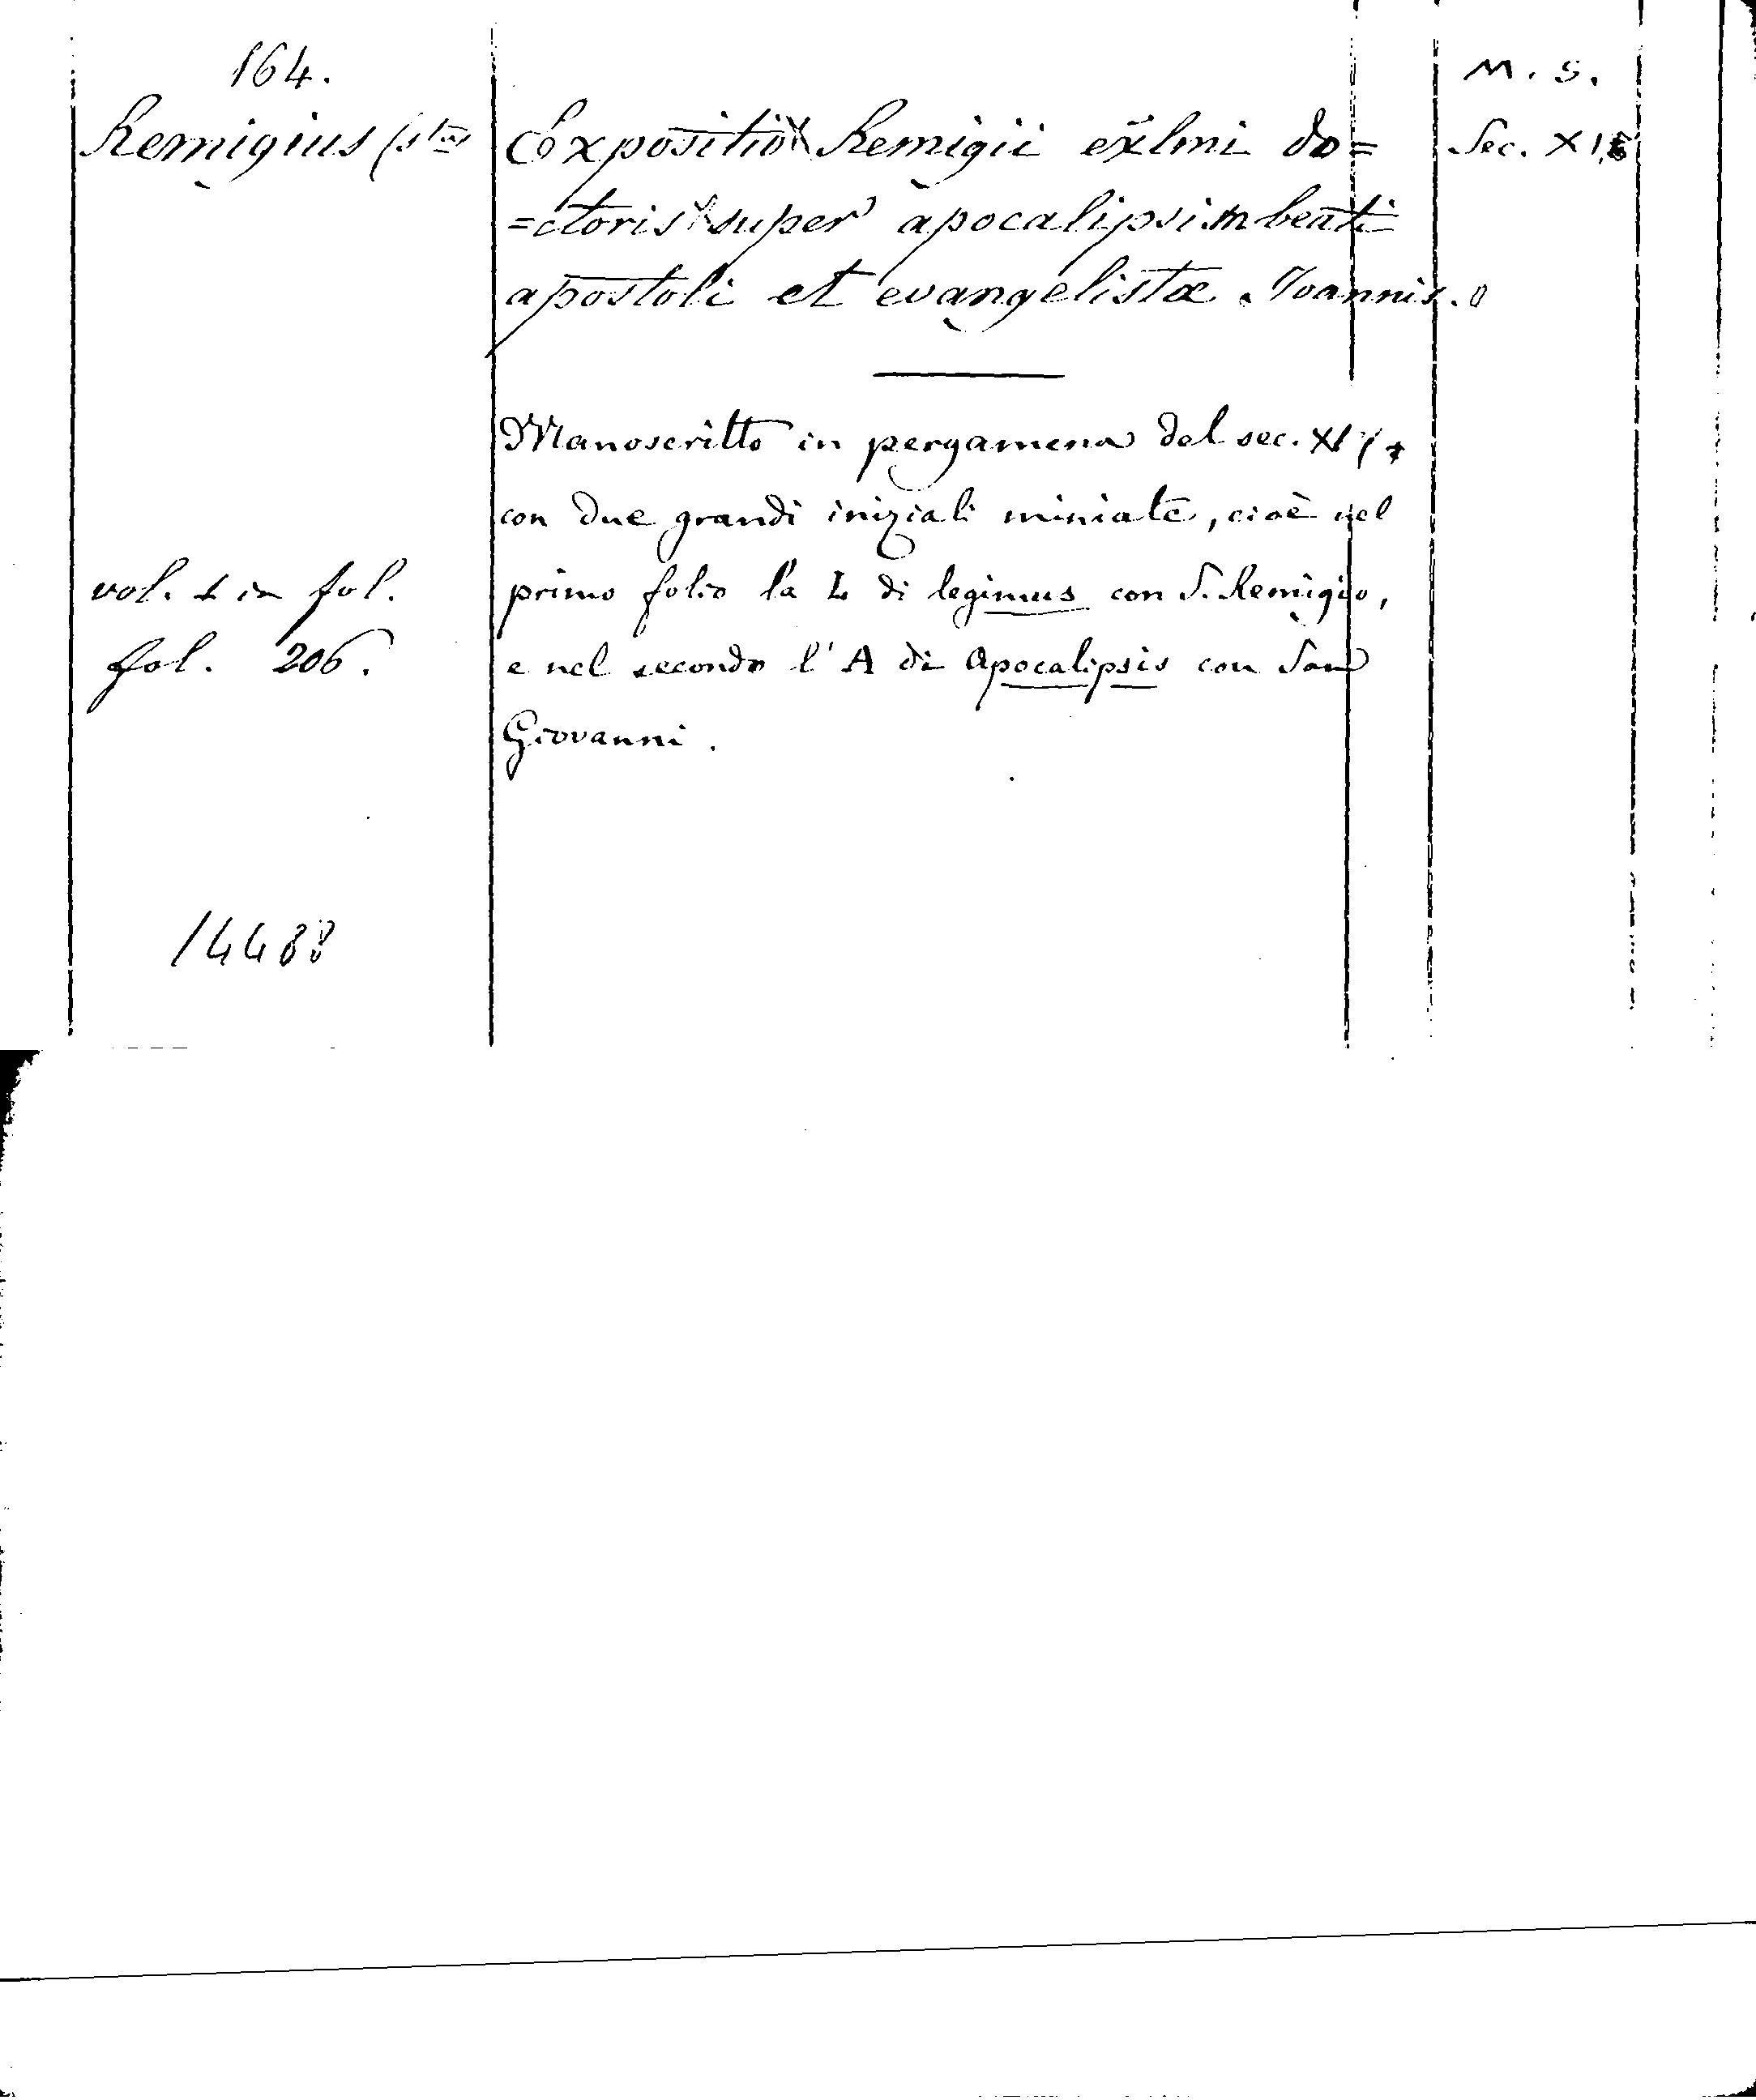 164.
Remigius (stus
M. S.
Expositio Remigii exlmi do=
Sec.
=ctoris super apocalipsim beati
apostoli et evangelistæ Joannis.
Manoscritto in pergamena del sec.
con due grandi iniziali miniate, cioè nel
primo folio la L di legimus con S. Remigio,
vol. 1 in fol.
e nel secondo l'A di Apocalipsis con San
fol. 206.
Giovanni.
14488